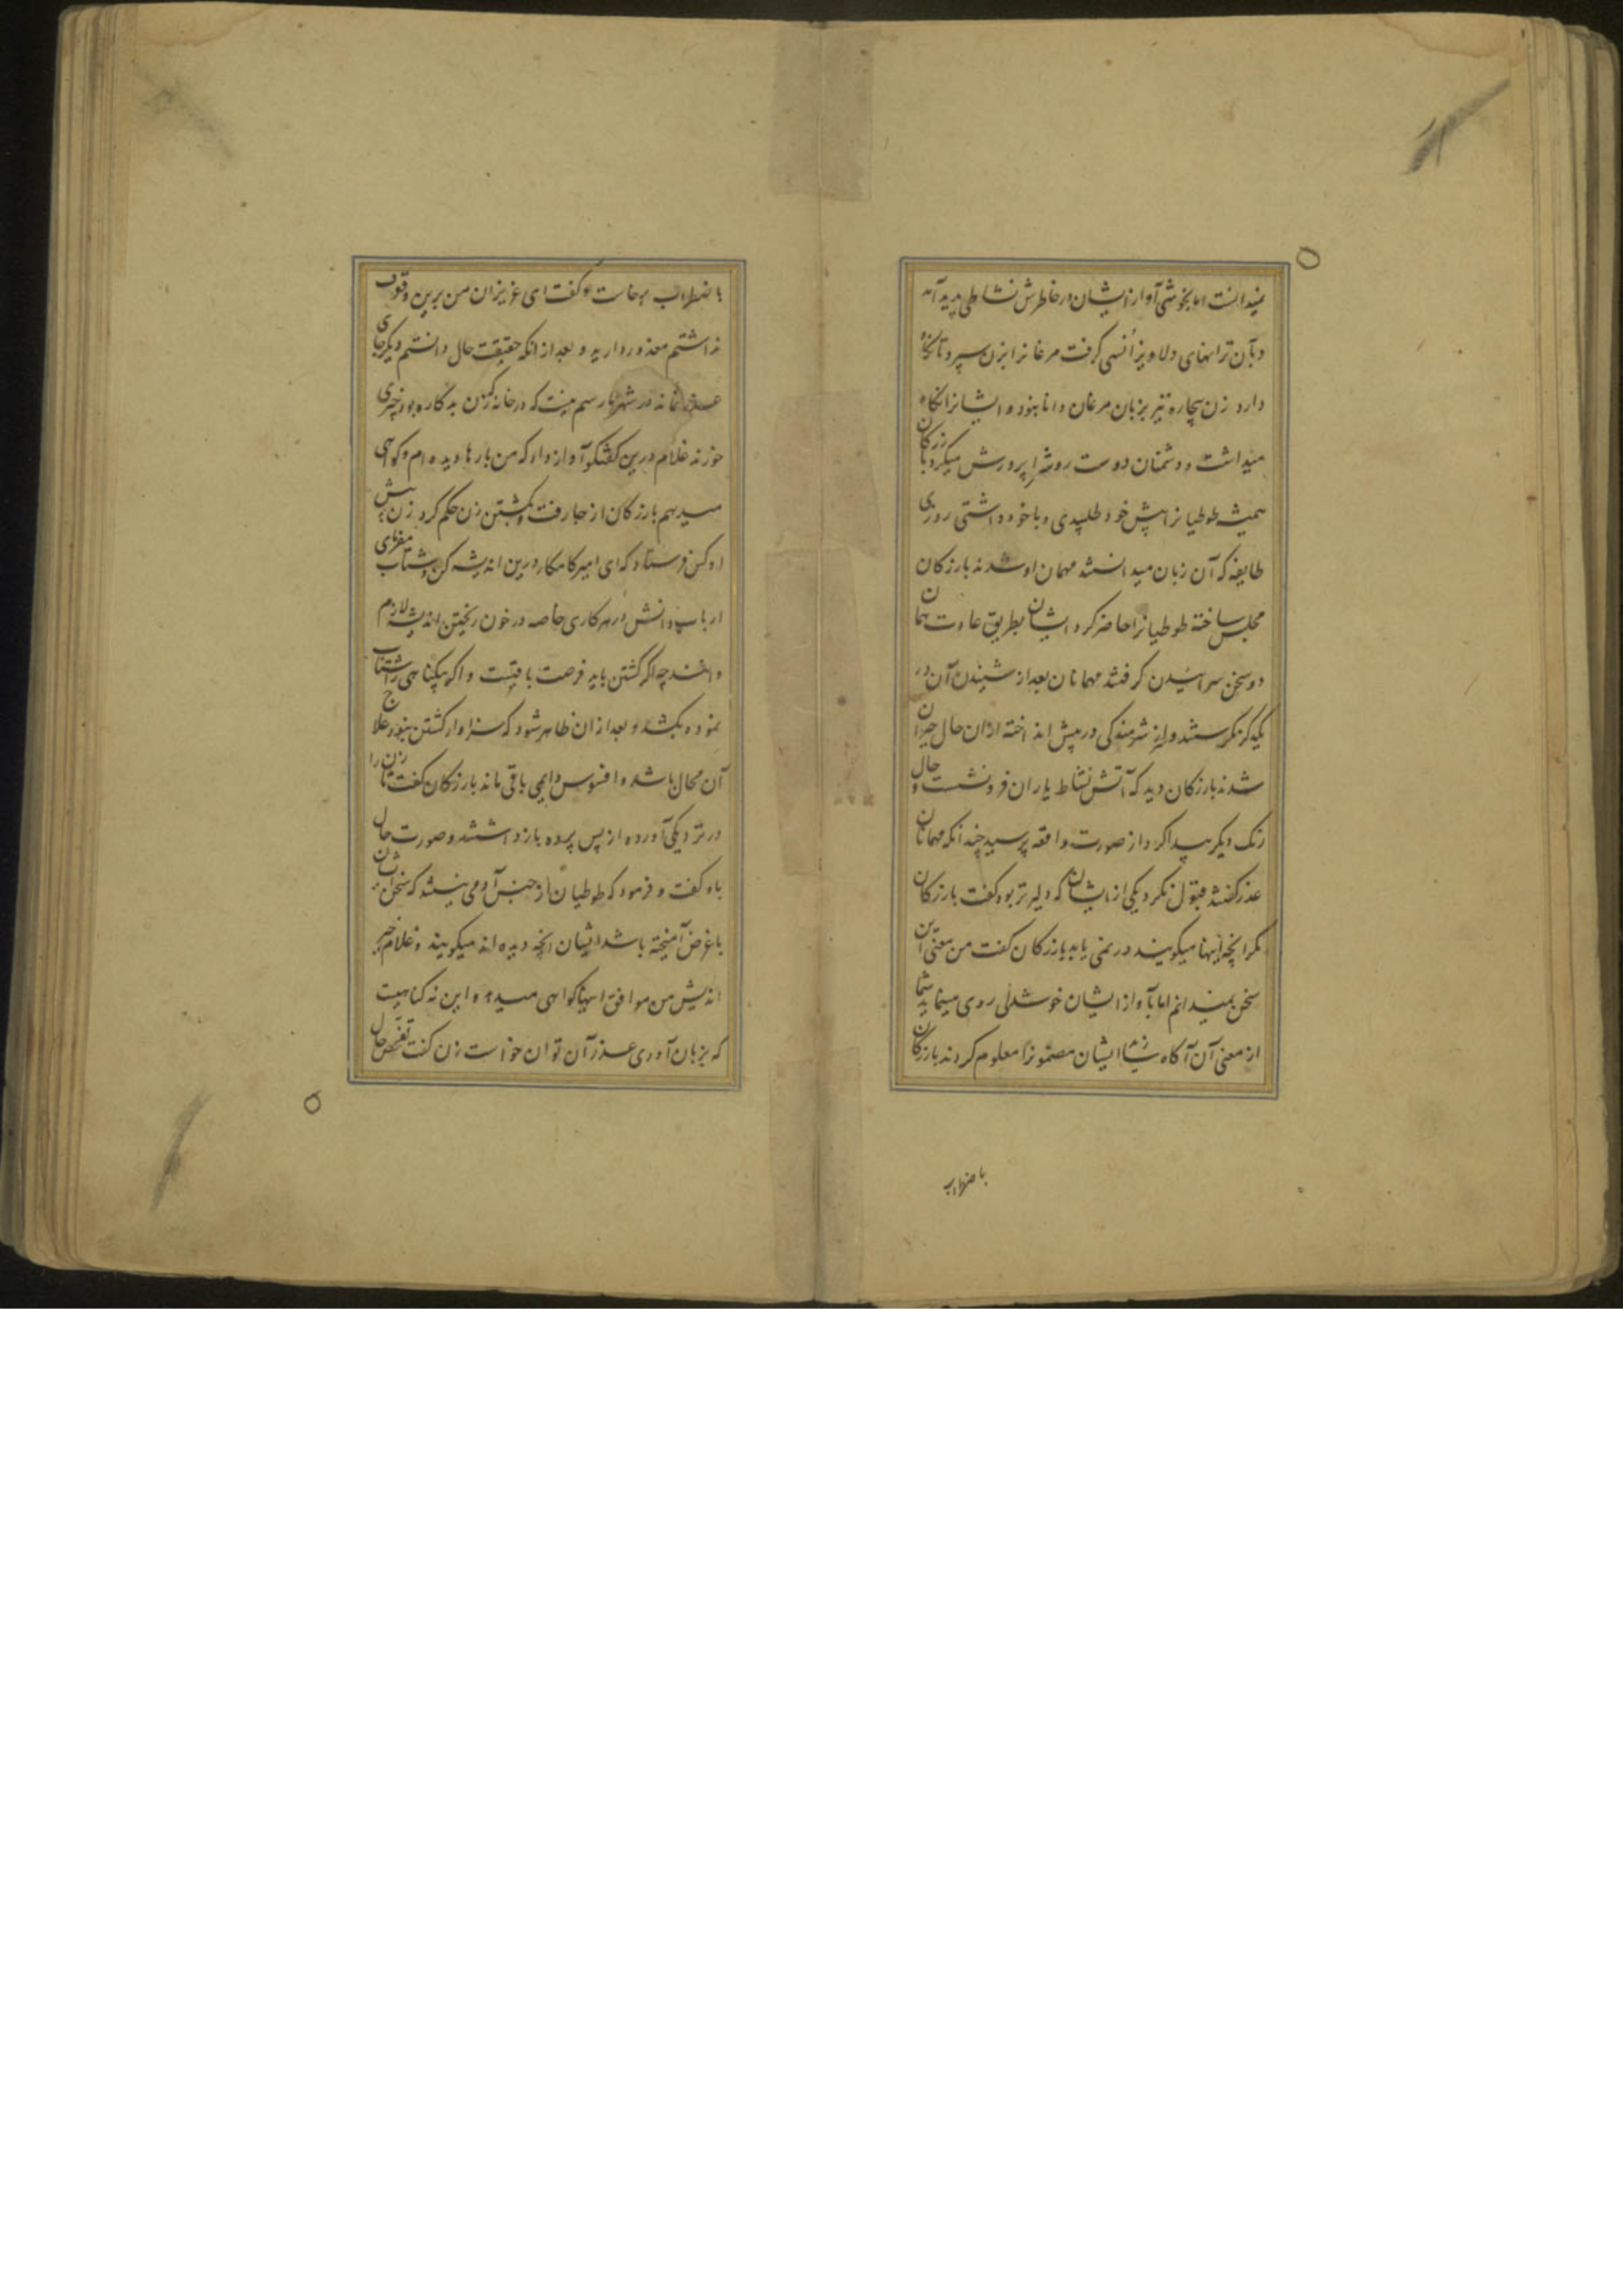 نمیدانست اما بخوشی آواز ایشان در خاطرش نشاطی پدید آمد
و بآن ترانهای دلاویز اُنسی گرفت مرغانرا بزن سپرد تا نگاه
دارد زن بیچاره نیز بزبان مرغان دانا نبود و ایشانرا نگاه
میداشت و دشمنان دوست روی را پرورش میکرد بازرکان
همیشه طوطیانرا پیش خود طلبیدی و با خود داشتی روزی
طایفه که آن زبان میدانستند مهمان او شدند بازرکان
مجلس ساخته طوطیانرا حاضر کرد ایشان بطریق عادت همان
دو سخن سراییدن گرفتند مهمانان بعد از شنیدن آن در
یکدگر نگرستند و سر شرمندگی در پیش انداخته ازان حال حیران
شدند بازرکان دید که آتش نشاط یاران فرو نشست و حال
رنک دیگر پیدا کرد از صورت واقعه پرسید چندانکه مهمانان
عذر گفتند قبول نکرد یکی از ایشان که دلیرتر بود گفت بازرکان
مکر آنچه اینها میگویند در نمی یابد بازرکان گفت من معنی این
سخن نمیدانم اما بآواز ایشان خوشدلی روی مینماید شما
از معنی آن آگاه سازید ایشان مضمونرا معلوم کردند بازرکان
باضطراب
باضطراب برخاست و گفت ای عزیزان من برین وقوف
نداشتم معذور دارید و بعد از انکه حقیقت حال دانستم دیگر جای
عذر نماند در شهر ما رسم نیست که در خانه که زن بدکاره بود چیزی
خورند غلام درین گفتگو آواز داد که من بارها دیده ام و گواهی
میدهم بازرکان از جا رفت و بکشتن زن حکم کرد زن پیش
او کس فرستاد که ای امیر کامکار درین اندیشه کن و شتاب مفرمای
ارباب دانش در هر کاری خاصه در خون ریختن اندیشه لازم
دانند چه اگر کشتن باید فرصت باقیست و اگر بیگناهی را شتاب
نموده بکشند و بعد ازان ظاهر شود که سزاوار کشتن نبود علاج
آن محال باشد و افسوس دایمی باقی ماند بازرکان گفت تا زن را
در نزدیکی آورده از پس پرده باز داشتند و صورت حال
باو گفت و فرمود که طوطیان از جنس آدمی نیستند که سخن ایشان
با غرض آمیخته باشد ایشان آنچه دیده اند میگویند و غلام خیر
اندیش من موافق اینها گواهی میدهد و این نه گناهیست
که بزبان آوری عذر آن توان خواست زن گفت تفحص حال